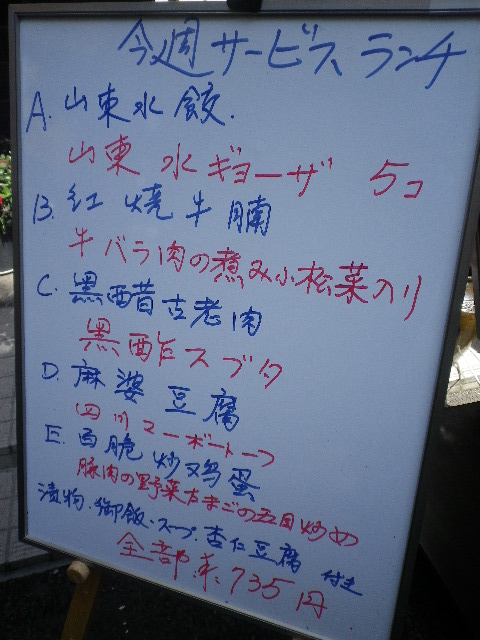 今週サービスランチ
A. 山東水餃.
山東水ギョーザ 5コ
B. 红焼牛腩
牛バラ肉の煮み小松菜入り
C. 黒醋古老肉
黒酢スブタ
D. 麻婆豆腐
四川マーボートーフ
E. 脆炒鸡蛋
豚肉の野菜たまごの五目炒め
漬物・御飯・スープ・杏仁豆腐 付き
全部 735円